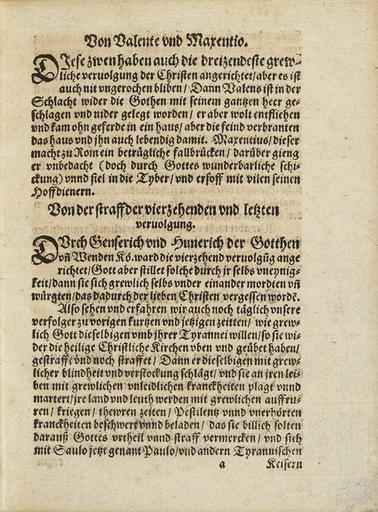 Von Valente vnd Maxentio.
DIese zwen haben auch die dreizendeste grew-
liche veruolgung der Christen angerichtet/aber es ist
auch nit vngerochen bliben/ Dann Valens ist in der
Schlacht wider die Gothen mit seinem gantzen heer ge-
schlagen vnd nider gelegt worden/ er aber wolt entfliehen
vnd kam ohn geferde in ein haus/ aber die feind verbranten
das haus vnd jhn auch lebendig damit. Maxentius/dieser
macht zu Rom ein betrügliche fallbrücken/ darüber gieng
er vnbedacht (doch durch Gottes wunderbarliche schi-
ckung) vnnd fiel in die Tyber/ vnd ersoff mit vilen seinen
Hoffdienern.
Von der straff der vierzehenden vnd letzten
veruolgung.
DVrch Genserich vnd Hunerich der Gotthen
vñ Wenden Kö. ward die vierzehend veruolgũg ange
richtet/ Gott aber stillet solche durch jr selbs vneynig-
keit/dann sie sich grewlich selbs vnder einander mordten vñ
würgten/das dadurch der lieben Christen vergessen wordẽ.
Also sehen vnd erfahren wir auch noch täglich vnsere
verfolger zu vorigen kurtzen vnd jetzigen zeitten/ wie grew-
lich Gott dieselbigen vmb jhrer Tyrannei willen/so sie wi-
der die heilige Christliche Kirchen vben vnd geübet haben/
gestrafft vnd noch straffet/ Dann er dieselbigen mit grew-
licher blindheit vnd verstockung schlägt/ vnd sie an jren lei-
ben mit grewlichen vnleidlichen kranckheiten plagt vnnd
martert/jre land vnd leuth werden mit grewlichen auffru-
ren/ kriegen/ thewren zeiten/ Pestilentz vnnd vnerhörten
kranckheiten beschwert vnnd beladen/ das sie billich solten
darauß Gottes vrtheil vnnd straff vermercken/ vnd sich
mit Saulo jetzt genant Paulo/vnd andern Tyrannischen
a Keisern